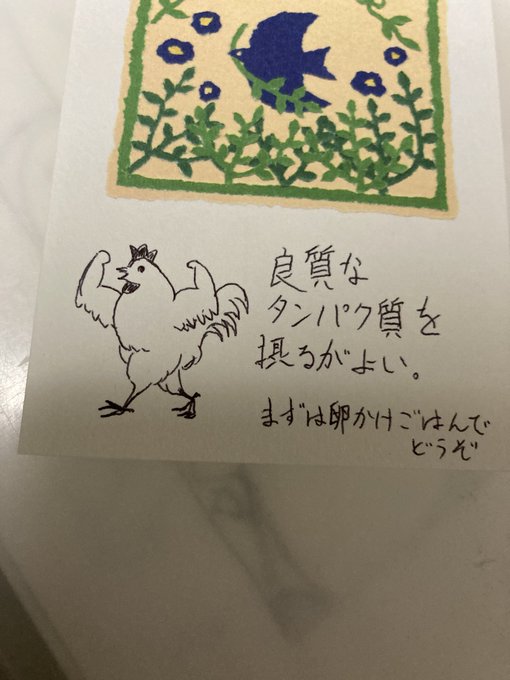 良質な
タンパク質を
摂るがよい。
まずは卵かけごはんで
どうぞ